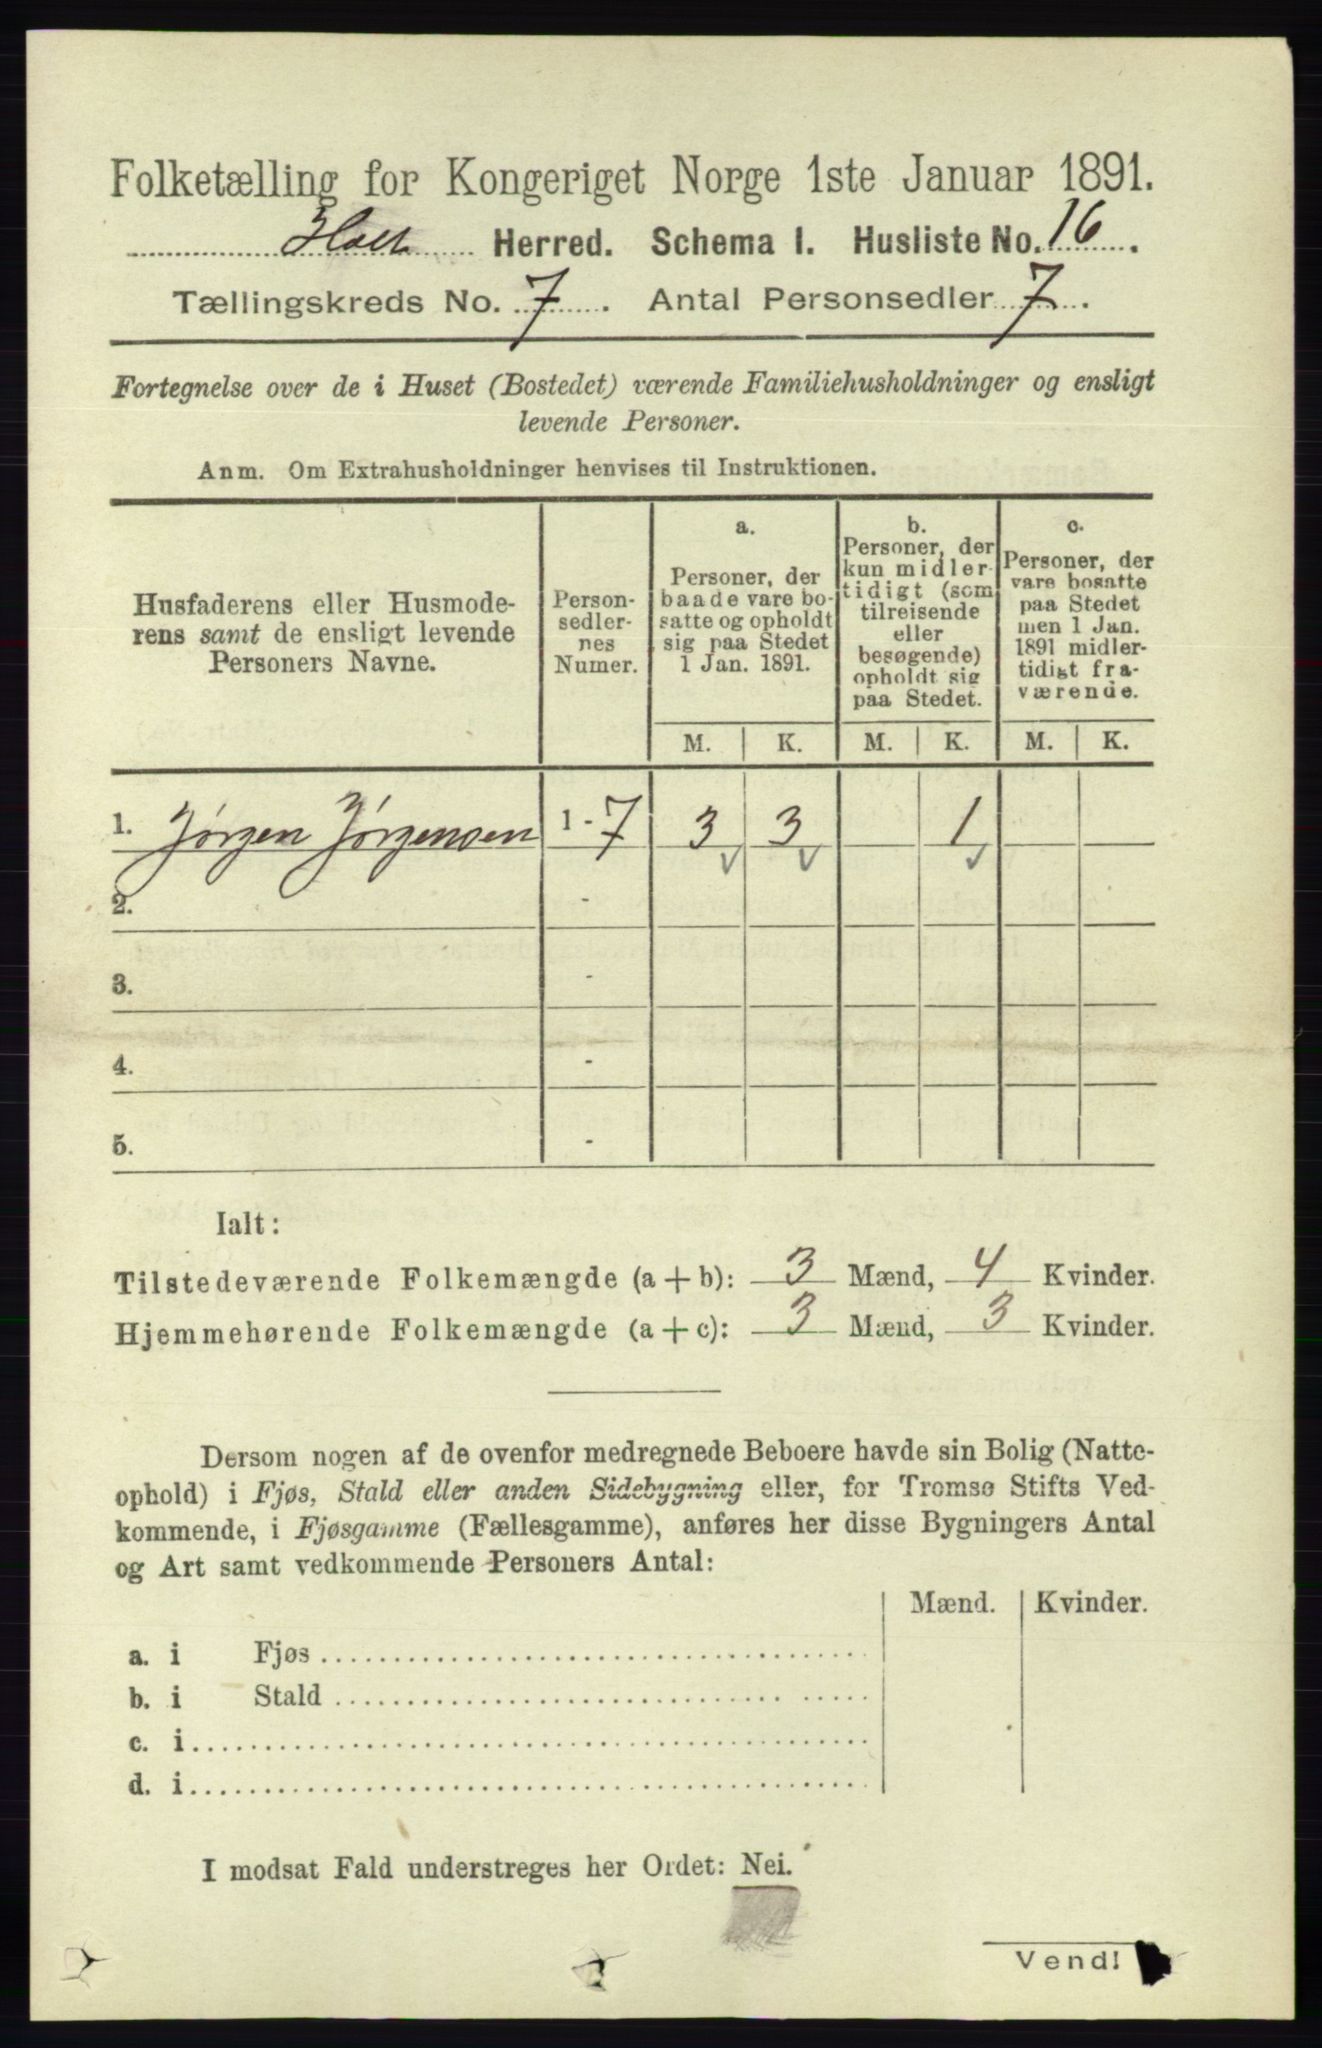 Folketælling for Kongeriget Norge 1ste Januar 1891.
Holt Herred. Schema I. Husliste No. 16.
Tællingskreds No. 7. Antal Personsedler 7.
Fortegnelse over de i Huset (Bostedet) værende Familiehusholdninger og ensligt
levende Personer.
Anm. Om Extrahusholdninger henvises til Instruktionen.
Husfaderens eller Husmode-
rens samt de ensligt levende
Personers Navne.
Person-
sedler-
nes
Numer.
a.
Personer, der
baade vare bo-
satte og opholdt
sig paa Stedet
1 Jan. 1891.
b.
Personer, der
kun midler-
tidigt (som
tilreisende
eller
besøgende)
opholdt sig
paa Stedet.
c.
Personer, der
vare bosatte
paa Stedet
men 1 Jan.
1891 midler-
tidigt fra-
værende.
M. K. M. K. M. K.
1. Jørgen Jørgensen 1 - 7 3 3 1
2. -
3. -
4. -
5. -
Ialt:
Tilstedeværende Folkemængde (a + b): 3 Mænd, 4 Kvinder.
Hjemmehørende Folkemængde (a + c): 3 Mænd, 3 Kvinder.
Dersom nogen af de ovenfor medregnede Beboere havde sin Bolig (Natte-
ophold) i Fjøs, Stald eller anden Sidebygning eller, for Tromsø Stifts Ved-
kommende, i Fjøsgamme (Fællesgamme), anføres her disse Bygningers Antal
og Art samt vedkommende Personers Antal:
Mænd. Kvinder.
a. i Fjøs
b. i Stald
c. i
d. i
I modsat Fald understreges her Ordet: Nei.
Vend!